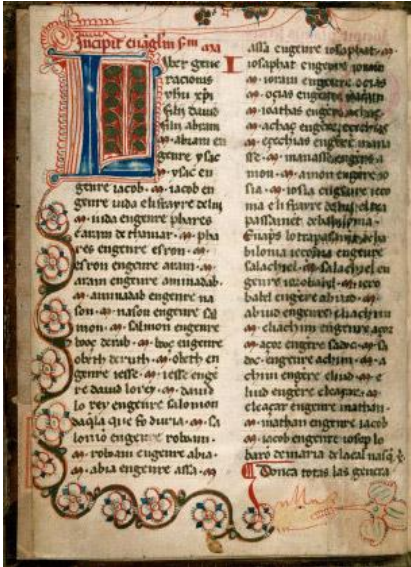 Incipit euāgliū sm̄ ma
Liber gene
racionis
yhu xpi
filii dauid
filii abram
abram en
genre ysac
ysac en
genre iacob · iacob en
genre iuda els frayre de luj
iuda engenre phares
e aram de thamar · pha
res engenre esrom ·
esrom engenre aram ·
aram engenre aminadab ·
aminadab engenre na
son · nason engenre sal
mon · salmon engenre
booç de rab · booç engenre
obeth de ruth · obeth en
genre iesse · iesse engē
re dauid lo rey · dauid
lo rey engenre salomon
daq̄la que fo duria · sa
lomō engenre roboam ·
roboam engenre abia ·
abia engenre assa ·
assa engenre iosaphat ·
iosaphat engenre ioram
ioram engenre ocias
ocias engenre ioatham
ioathas engenre achaç
achaç engēre ezechias
ezechias engenre mana
sse · manasse engenre a
mon · amon engenre io
sia · iosia engenre ieco
nia els frayre de luj el tra
passament de babilonia ·
E naps lo trapassament de ba
bilonia ieconia engenre
salachiel · salachiel en
genre zorobabel · zoro
babel engēre abiud ·
abiud engenre eliachim
eliachim engenre açor
açor engēre sadoc · sa
doc engenre achim · a
chim engēre eliud · e
liud engēre eleaçar ·
eleaçar engenre mathan ·
mathan engenre iacob
iacob engenre iosep lo
baro de maria de la cal nasq̄
Donca totas las genera